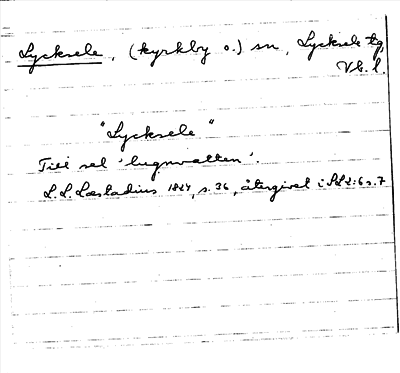 Lycksele, (kyrkby o.) sn, Lycksele tg,
Vb. l.
"Lycksele"
Till sel 'lugnvatten'.
L L Læstadius 1824, s. 36, återgivet i SL 2:6 s. 7